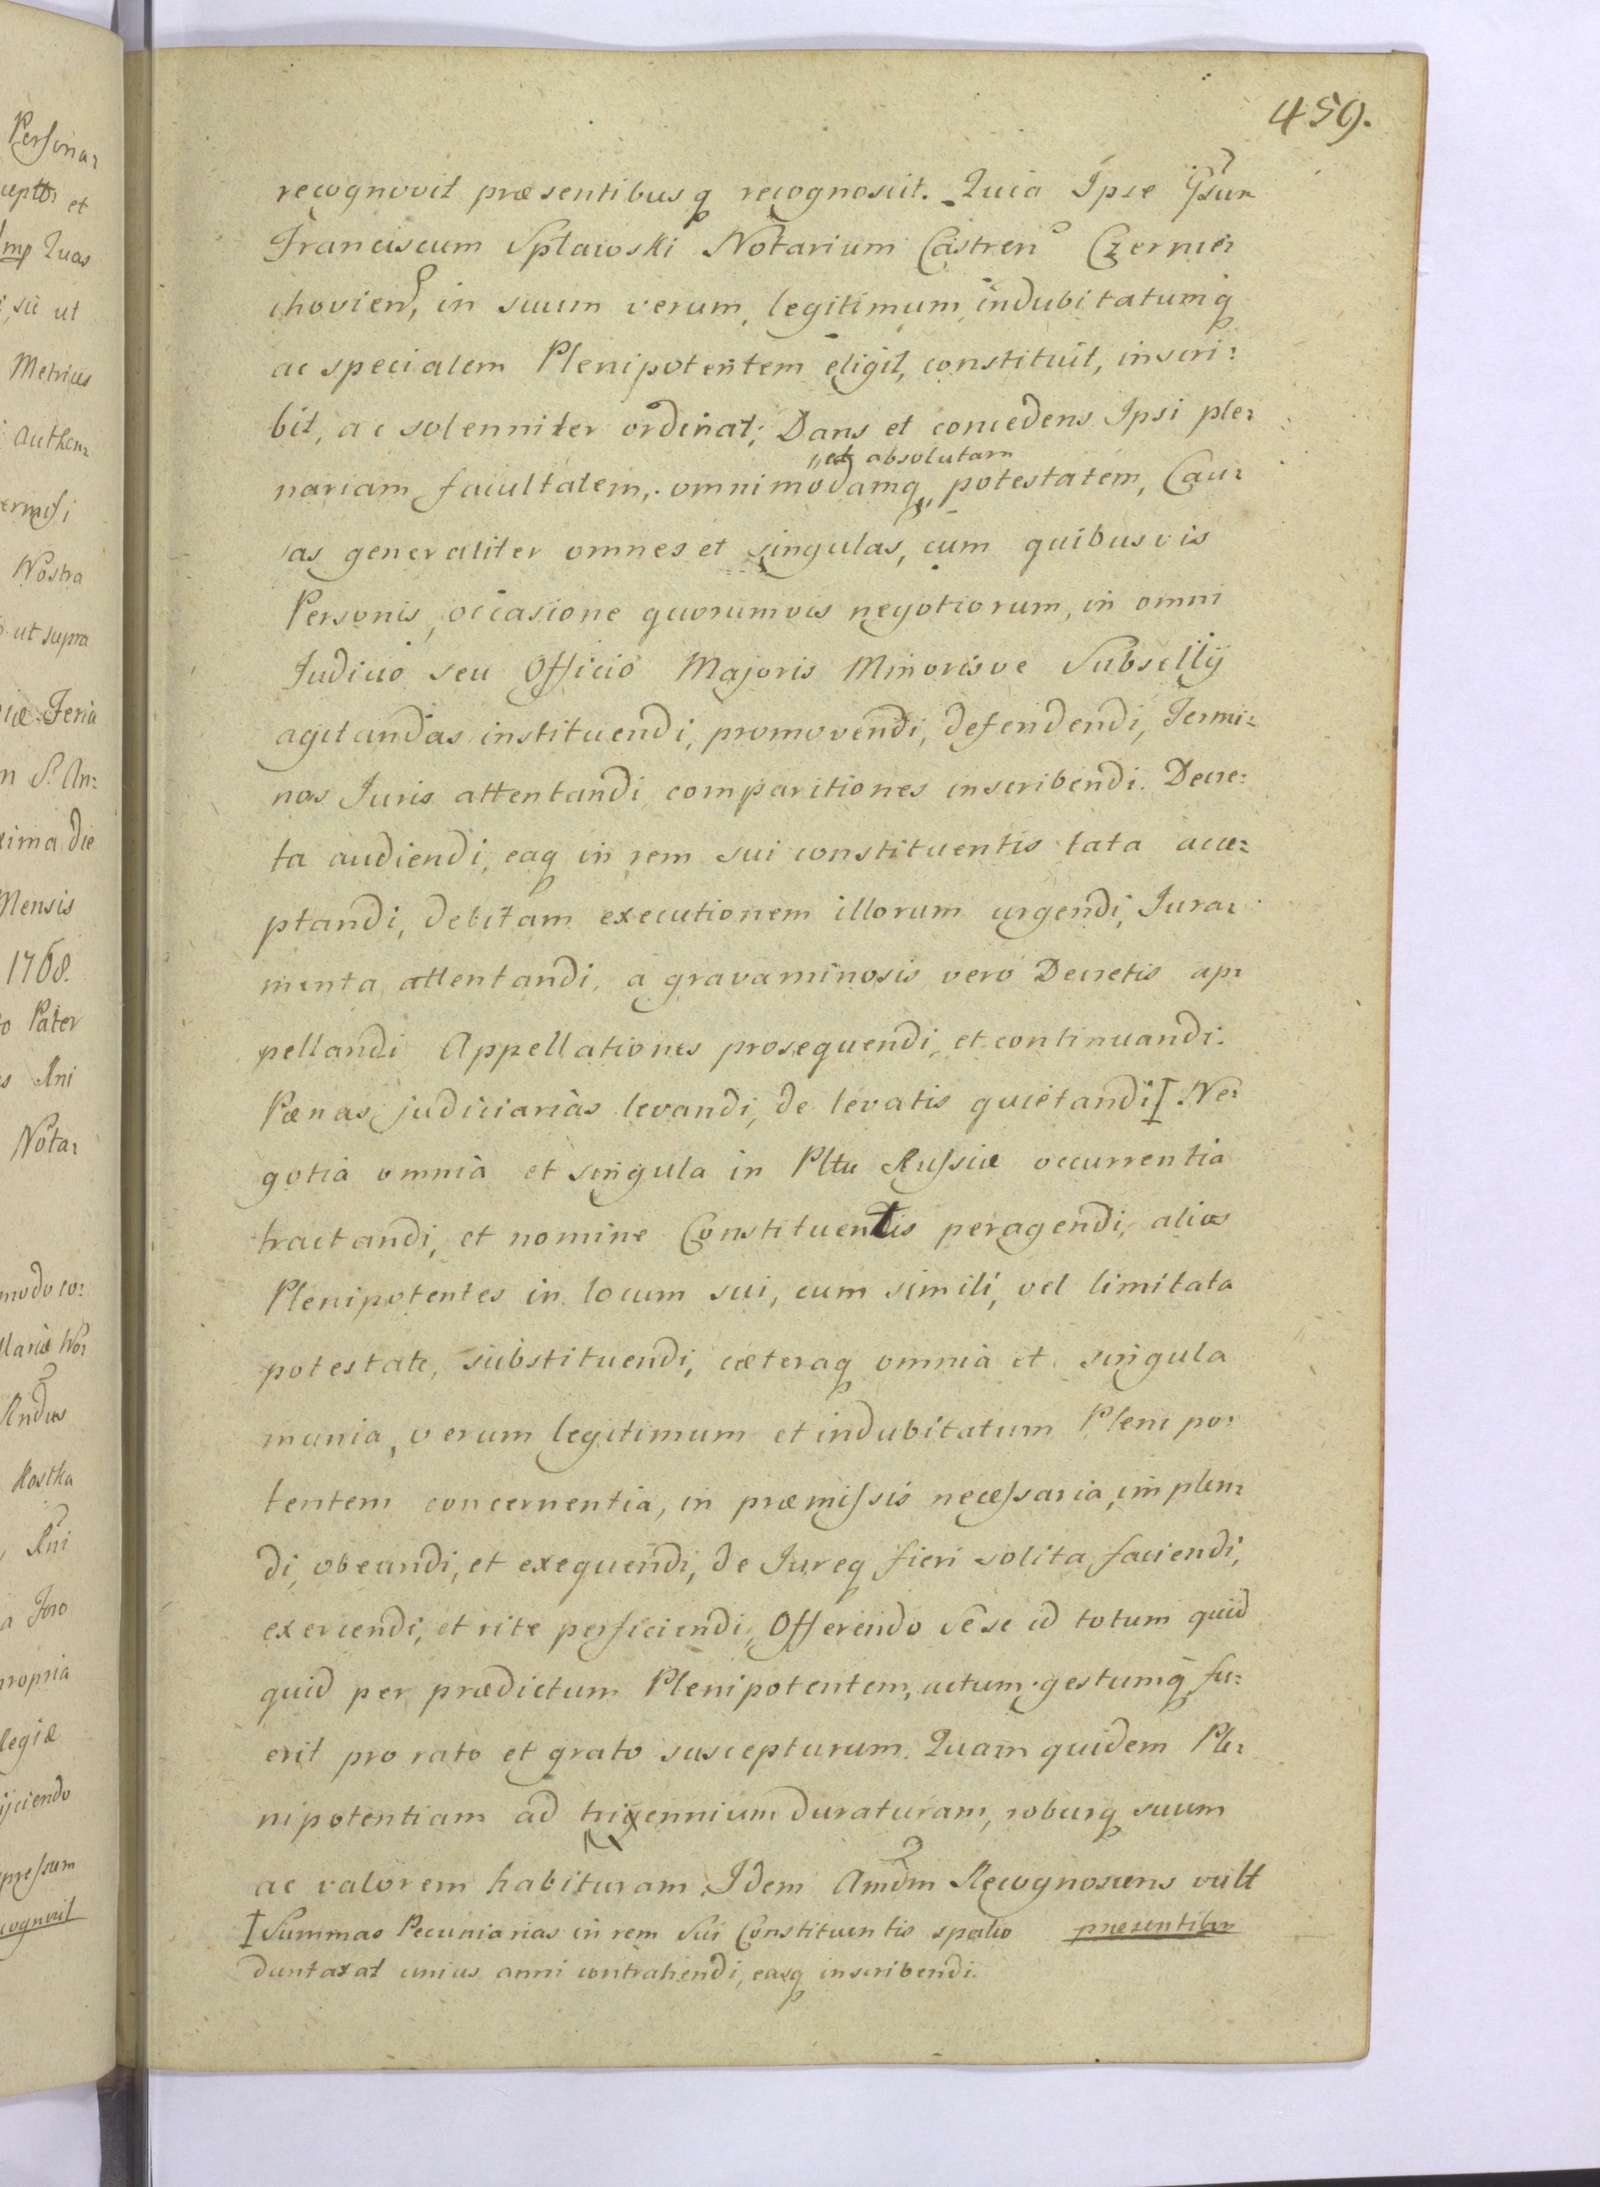 459.
recognovit præsentibusq recognoscit. Quia Ipse Gsum
Franciscum Spławski Notarium Castren Czernie:
chovien, in suum verum, legitimum, indubitatumq
ac specialem Plenipotentem eligit, constituit, inscri:
bit, ac solenniter ordinat; Dans et concedens Ipsi ple:
et absolutam
nariam facultatem, omnimodamq potestatem, Cau:
sas generaliter omnes et singulas, cum quibusvis
Personis, occasione quorumvis negotiorum, in omni
Judicio seu Officio Majoris Minorisve Subsellij
agitandas instituendi, promovendi, defendendi, Termi:
nos Juris attentandi, comparitiones inscribendi. Decre:
ta audiendi, eaq in rem sui constituentis lata acce:
ptandi, debitam executionem illorum urgendi, Jura:
menta attentandi, a gravaminosis vero Decretis ap:
pellandi Appellationes prosequendi, et continuandi.
Pænas judiciarias levandi, de levatis quietandi Ne:
gotia omnia et singula in Pltu Russiæ occurrentia
tractandi, et nomine Constituentis peragendi, alios
Plenipotentes in locum sui, cum simili, vel limitata
potestate, substituendi, cæteraq omnia et singula
munia, verum legitimum et indubitatum Plenipo:
tentem concernentia, in præmissis necessaria, implen:
di, obeundi, et exequendi, de Jureq fieri solita, faciendi,
exercendi, et rite perficiendi, Offerendo sese id totum quid
quid per prædictum Plenipotentem, actum gestumq fu:
erit pro rato et grato suscepturum. Quam quidem Ple:
nipotentiam ad triennium duraturam, roburq suum
ac valorem habituram. Idem Amdm Recognoscens vult
Summas Pecuniarias in rem Sui Constituentis spatio præsentibus
duntaxat unius anni contrahendi, easq inscribendi.
Persona:
et
Quas
sic ut
Metrices
Authen:
Nostra
ut supra
Feria
S. An:
die
Mensis
1768.
Pater
Rni
Nota:
modo co:
Rndus
Kostka
Rni
Foro